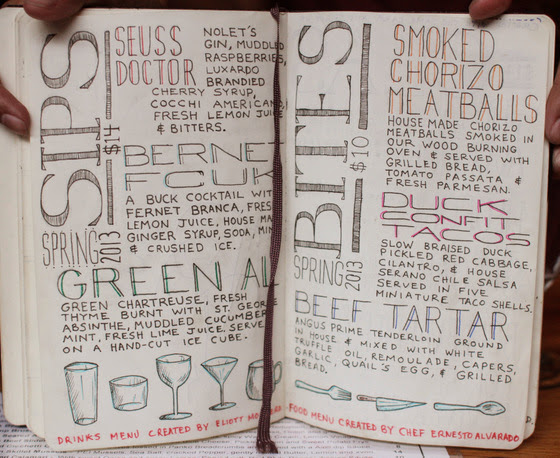 SIPS
$14
SPRING
2013
SEUSS
DOCTOR
NOLET'S
GIN, MUDDLED
RASPBERRIES,
LUXARDO
BRANDIED
CHERRY SYRUP,
COCCHI AMERICANO,
FRESH LEMON JUICE
& BITTERS.
BERNET
FCUK
A BUCK COCKTAIL WITH
FERNET BRANCA, FRESH
LEMON JUICE, HOUSE MA
GINGER SYRUP, SODA, MIN
& CRUSHED ICE.
GREEN AL
GREEN CHARTREUSE, FRESH
THYME BURNT WITH ST. GEORGE
ABSINTHE, MUDDLED CUCUMBER
MINT, FRESH LIME JUICE. SERVE
ON A HAND-CUT ICE CUBE.
DRINKS MENU CREATED BY ELIOTT
BITES
$10
SPRING
2013
SMOKED
CHORIZO
MEATBALLS
HOUSE MADE CHORIZO
MEATBALLS SMOKED IN
OUR WOOD BURNING
OVEN & SERVED WITH
GRILLED BREAD,
TOMATO PASSATA &
FRESH PARMESAN.
DUCK
CONFIT
TACOS
SLOW BRAISED DUCK
PICKLED RED CABBAGE,
CILANTRO, & HOUSE
SERANO CHILE SALSA
SERVED IN FIVE
MINIATURE TACO SHELLS.
BEEF TARTAR
ANGUS PRIME TENDERLOIN GROUND
IN HOUSE & MIXED WITH WHITE
TRUFFLE OIL, REMOULADE, CAPERS,
GARLIC, QUAIL'S EGG, & GRILLED
BREAD.
FOOD MENU CREATED BY CHEF ERNESTO ALVARADO